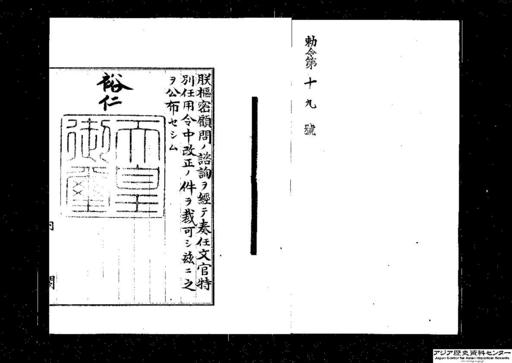 勅令第十九號
朕樞密顧問ノ諮詢ヲ經テ奏任文官特
別任用令中改正ノ件ヲ裁可シ茲ニ之
ヲ公布セシム
裕仁
天皇
御璽
内閣
アジア歴史資料センター
Japan Center for Asian Historical Records